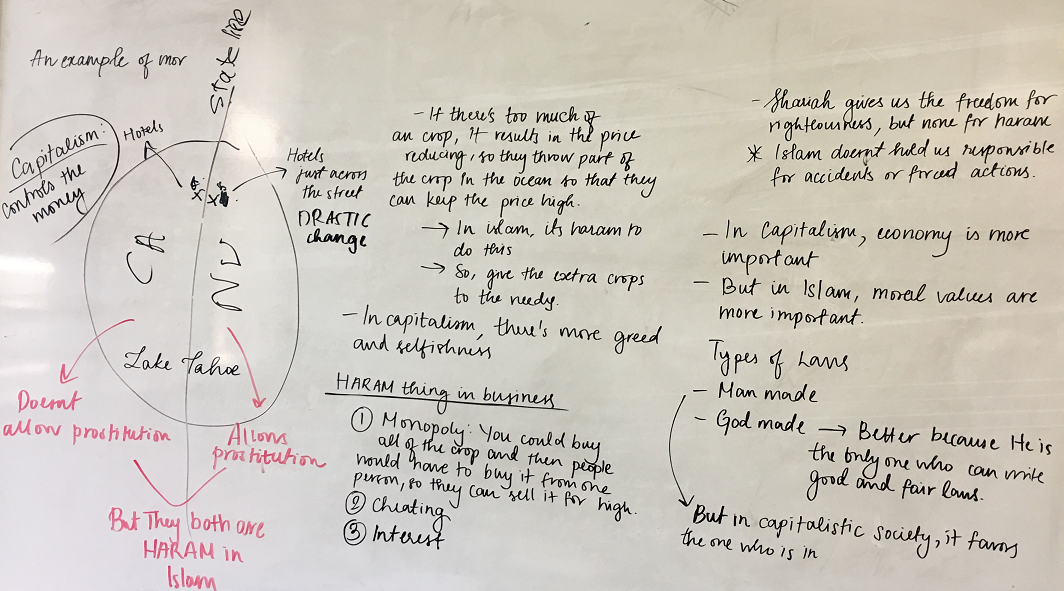 An example of mor
State line
Capitalism:
controls the
money
Hotels
Hotels
just across
the street
DRASTIC
change
CA
NV
Lake Tahoe
Doesnt
allow prostitution
Allows
prostitution
But They both are
HARAM in
Islam
- If there's too much of
an crop, it results in the price
reducing, so they throw part of
the crop in the ocean so that they
can keep the price high.
→ In islam, its haram to
do this
→ So, give the extra crops
to the needy.
- In capitalism, there's more greed
and selfishness
HARAM thing in business
① Monopoly: You could buy
all of the crop and then people
would have to buy it from one
person, so they can sell it for high.
② Cheating
③ Interest
- Shariah gives us the freedom for
righteousness, but none for haram
* Islam doesnt hold us responsible
for accidents or forced actions.
- In Capitalism, economy is more
important
- But in Islam, moral values are
more important.
Types of Laws
- Man made
- God made → Better because He is
the only one who can write
good and fair laws.
But in capitalistic society, it favors
the one who is in